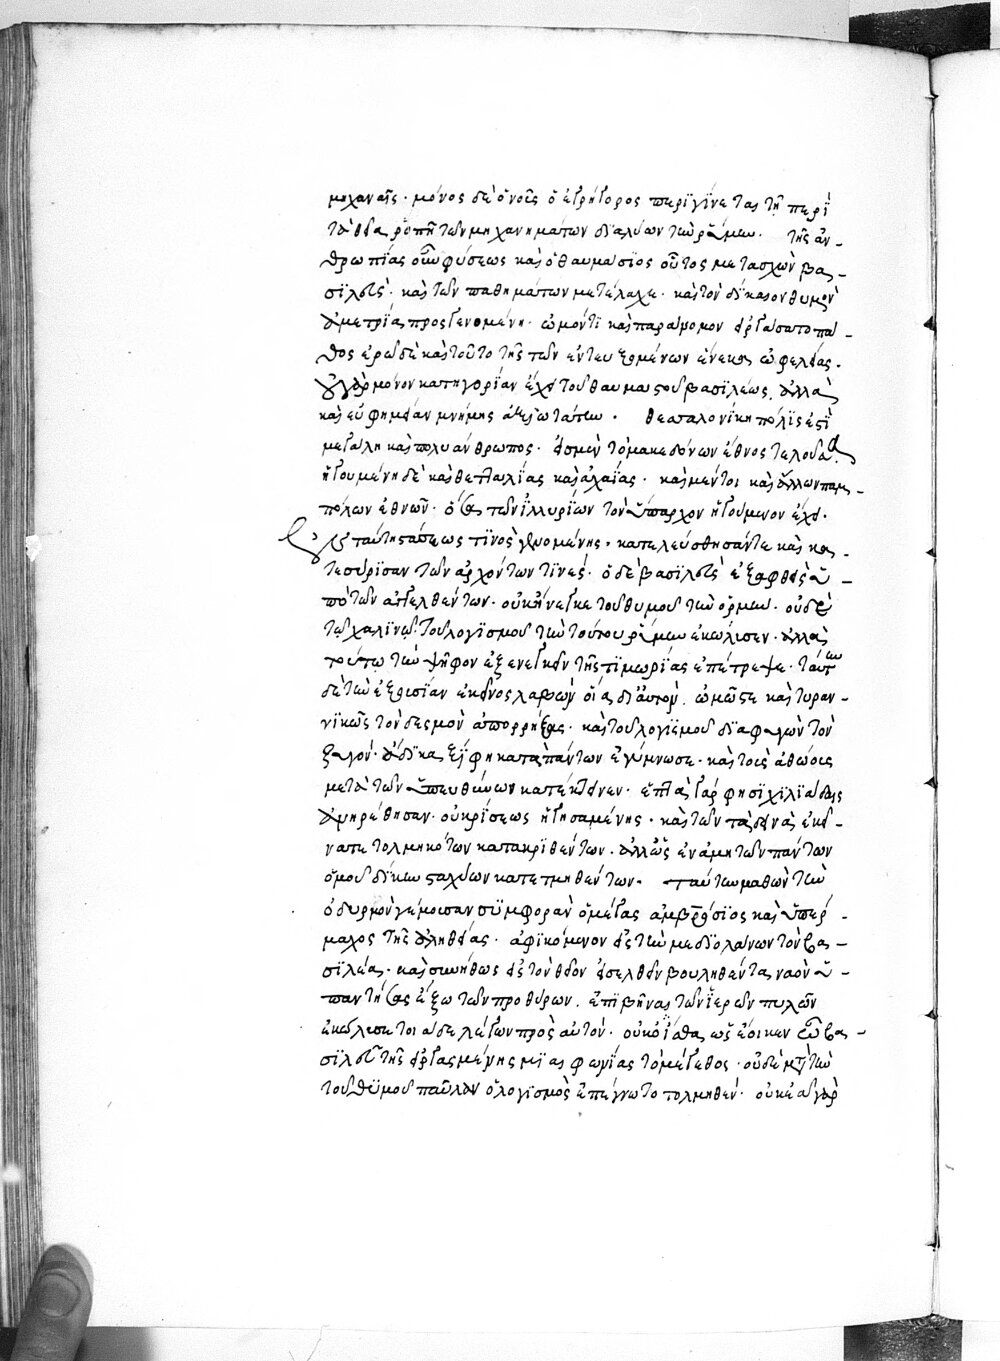 μηχαναῖς· μόνος δὲ ὁ νοῦς ὁ ἐγρήγορος περιγίνεται τῇ περὶ
τὰ θεῖα ῥοπῇ τῶν μηχανημάτων διαλύων τὴν ῥώμην. τῆς ἀν-
θρωπίας οὖν φύσεως καὶ ὁ θαυμάσιος οὗτος μετασχὼν βα-
σιλεὺς· καὶ τῶν παθημάτων μετέλαχε· καὶ τὸν δίκαιον θυμὸν
ἀμετρίας προσγενομένη· ὠμόν τι καὶ παράνομον εἰργάσατο πά-
θος ἐρῶ δὲ καὶ τοῦτο τῆς τῶν ἐντευξομένων ἕνεκα ὠφελείας.
οὐ γὰρ μόνον κατηγορίαν ἔχει τοῦ θαυμαστοῦ βασιλέως, ἀλλὰ
καὶ εὐφημίαν μνήμης ἀξιωτάτην. θεσσαλονίκη πόλις ἐστὶ
μεγάλη καὶ πολυάνθρωπος· εἰς μὲν τὸ μακεδόνων ἔθνος τελοῦσα.
ἡγουμένη δὲ καὶ θετταλίας καὶ ἀχαΐας· καὶ μέντοι καὶ ἄλλων παμ-
πόλων ἐθνῶν· ὅσα τῶν ἰλλυρίων τὸν ὕπαρχον ἡγούμενον ἔχει.
ἐν ταύτῃ στάσεως τινὸς γενομένης, κατελεύσθησάν τε καὶ κα-
τεσύρησαν τῶν ἀρχόντων τινές· ὁ δὲ βασιλεὺς ἐξαφθεὶς ὑ-
πὸ τῶν ἀγγελθέντων· οὐκ ἤνεγκε τοῦ θυμοῦ τὴν ὁρμὴν. οὐδὲ
τῷ χαλινῷ τοῦ λογισμοῦ τὴν τούτου ῥύμην ἐκώλυσεν· ἀλλὰ
τούτῳ τὴν ψῆφον ἐξενεγκεῖν τῆς τιμωρίας ἐπέτρεψε· ταύτην
δὲ τὴν ἐξουσίαν ἐκεῖνος λαβὼν οἷα δι' αὐτοῦ, ὠμῶς τε καὶ τυραν-
νικῶς τὸν δεσμὸν ἀπορρήξας· καὶ τοῦ λογισμοῦ διαφυγὼν τὸν
ζυγόν· ἄδικα ξίφη κατὰ πάντων ἐγύμνωσε· καὶ τοὺς ἀθώους
μετὰ τῶν ὑπευθύνων κατέκτεινεν· ἑπτὰ γάρ φησι χιλιάδες
ἀνῃρέθησαν· οὐ κρίσεως ἡγησαμένης· καὶ τῶν τὰ δεινὰ ἐκεῖ-
να τετολμηκότων κατακριθέντων. ἀλλ' ὡς ἐν ἀμητῷ πάντων
ὁμοῦ δίκην σταχύων κατατμηθέντων. ταύτην μαθὼν τὴν
ὀδυρμῶν γέμουσαν συμφορὰν ὁ μέγας ἀμβρόσιος καὶ ὑπέρ-
μαχος τῆς ἀληθείας· ἀφικόμενον εἰς τὴν μεδιολάνων τὸν βα-
σιλέα· καὶ συνήθως εἰς τὸν θεῖον εἰσελθεῖν βουληθέντα ναὸν ὑ-
παντήσας ἔξω τῶν προθύρων. ἐπιβῆναι τῶν ἱερῶν πυλῶν
ἐκώλυσε τοιάδε λέγων πρὸς αὐτόν· οὐκ οἶσθα ὡς ἔοικεν ὦ βα-
σιλεῦ τῆς εἰργασμένης μιαιφονίας τὸ μέγεθος· οὐδὲ μετὰ τὴν
τοῦ θυμοῦ παῦλαν ὁ λογισμὸς ἐπέγνω τὸ τολμηθέν· οὐκ ἐᾷ γὰρ